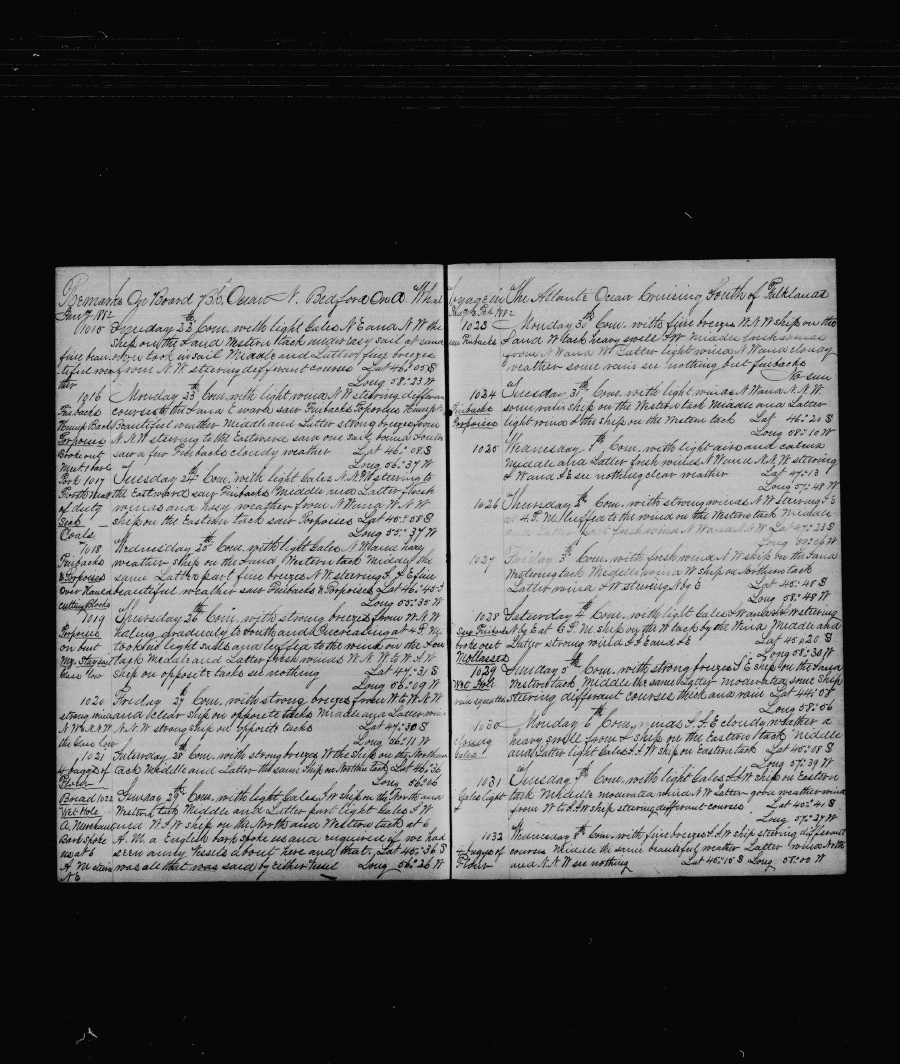 Remarks On Board Bk. Ocean N. Bedford On A Whal
Jany 1882
1015 Sunday 22th Com. with light Gales N E and N W the
ship on the S and Western tack under easy sail at same
time took in sail Middle and Latter fine breezes
from N. W. steering different courses Lat 46=05 S
Long 58=23 W
1016 Monday 23th Com. with light winds N W steering different
Finbacks courses to the S and E ward saw Finbacks Poporses Humpb
Hump Back Beautiful weather Middle and Latter strong breezes from
Porposes N. N. W steering to the Eastward saw one sail bound
Broke out saw a few Finbacks cloudy weather Lat 46=08 S
Meat 1 barl Long 56=37 W
Pork 1017 Tuesday 24th Com. with light Gales N. N. W steering to
the Eastward saw Finbacks Middle and Latter fresh
of duty winds and hazy weather from N W and W N W
Sick ship on the Eastern tack saw Porposes Lat 46=58 S
Coals Long 55=37 W
1018 Wednesday 25th Com. with light Gales N W and hazy
Finbacks weather, ship on the S and Western tack Middle the
& Porposes same Latter part fine breezes N W steering S. S E fine
Over Hauled beautiful weather saw Finbacks & Porposes Lat 46=45 S
cutting blocks Long 55=35 W
1019 Thursday 26th Com. with strong breezes from W N W
Porposes haling gradually to South and Overcasting at 4 P. M.
on but took in light sails and luffed to the wind on the S on
Mz. Staysail tack Middle and Latter fresh winds W. N. W to W S W
Base low ship on opposite tacks see nothing Lat 47=31 S
Long 56=09 W
1020 Friday 27th Com. with strong breezes from W to W. N. W
strong winds and clear ship on opposite tacks Middle and Latter wind
N W & N N W N. N. W strong ship on opposite tacks Lat 47=30 S
the Base low Long 56=11 W
1021 Saturday 28th Com. with strong breezes W the Ship on the Northern
4 bags of tack Middle and Latter the same Ship on Northn tack Lat 46=36
Flour Long 56=06
Bread 1022 Sunday 29th Com. with light Gales S W Ship on the North and
Wet Hole Western tack Middle and Latter part light Gales S W
A. Merchant and W. S W ship on the North and Western tack at 6
Bark spoke A. M a English bark spoke us and enquired if we had
us at 6 seen any Vessels about here and that, Lat 45=36 S
A. M steering was all that was said by either Vessel Long 56=26 W
N E
oyage in The Atlantic Ocean Cruising South of Falklands
Feb. 1882
1023 Monday 30th Com. with fine breezes W. N. W ship on the
see Finbacks S and W tack heavy swell S W Middle fresh
from N W and W Latter light wind N W and cloudy
weather some rain see nothing but finbacks
No sun
1024 Tuesday 31th Com. with light winds N W and N. N. W.
Finbacks some rain ship on the Western tack Middle and Latter
Porposes light winds & the ship on the Western tack Lat 46=20 S
Long 58=10 W
1025 Wednesday 1th Com. with light airs and calms
Middle and Latter fresh winds. N W and N. N. W steering
S W and S E see nothing clear weather Lat 47=13
Long 57=48 W
1026 Thursday 2th Com. with strong winds N. W Steering S E
at 4 P. M luffed to the wind on the Western tack Middle
and Latter part fresh wind N W and N. N. W Lat 47=23 S
Long 59=06 W
1027 Friday 3th Com. with fresh wind N. W ship on the S and
Western tack Middle wind W ship on Northern tack
Latter wind S W steering N by E Lat 45=48 S
Long 58=48 W
1028 Saturday 4th Com. with light Gales S W and W S W steering
N by E at 6 P. M. ship on the W tack by the Wind Middle and
broke out Latter strong wind S S E and S E Lat 45=20 S
Mollasses Long 58=30 W
1029 Sunday 5th Com. with strong breezes S E ship on the S and
Wet Hole Western tack Middle the same Latter moderated some ship
rain squalls steering different courses thick and rain Lat 44=58
Long 58=56
1030 Monday 6th Com. winds S. S E cloudy weather a
cloudy heavy swell from S ship on the Eastern tack Middle
Gales and Latter light Gales S. S W ship on Eastern tack Lat 45=08 S
Long 57=39 W
1031 Tuesday 7th Com. with light Gales S. S W ship on Eastern
Gales light tack Middle moderated wind N. W Latter good weather wind
from W to S. S W ship steering different courses Lat 45=41 S
Long 57=27 W
1032 Wednesday 8th Com. with fine breezes S. S W ship steering different
4 baggs of courses Middle the same beautiful weather Latter wind North
Flour and N. N W see nothing Lat 45=15 S Long 58=00 W